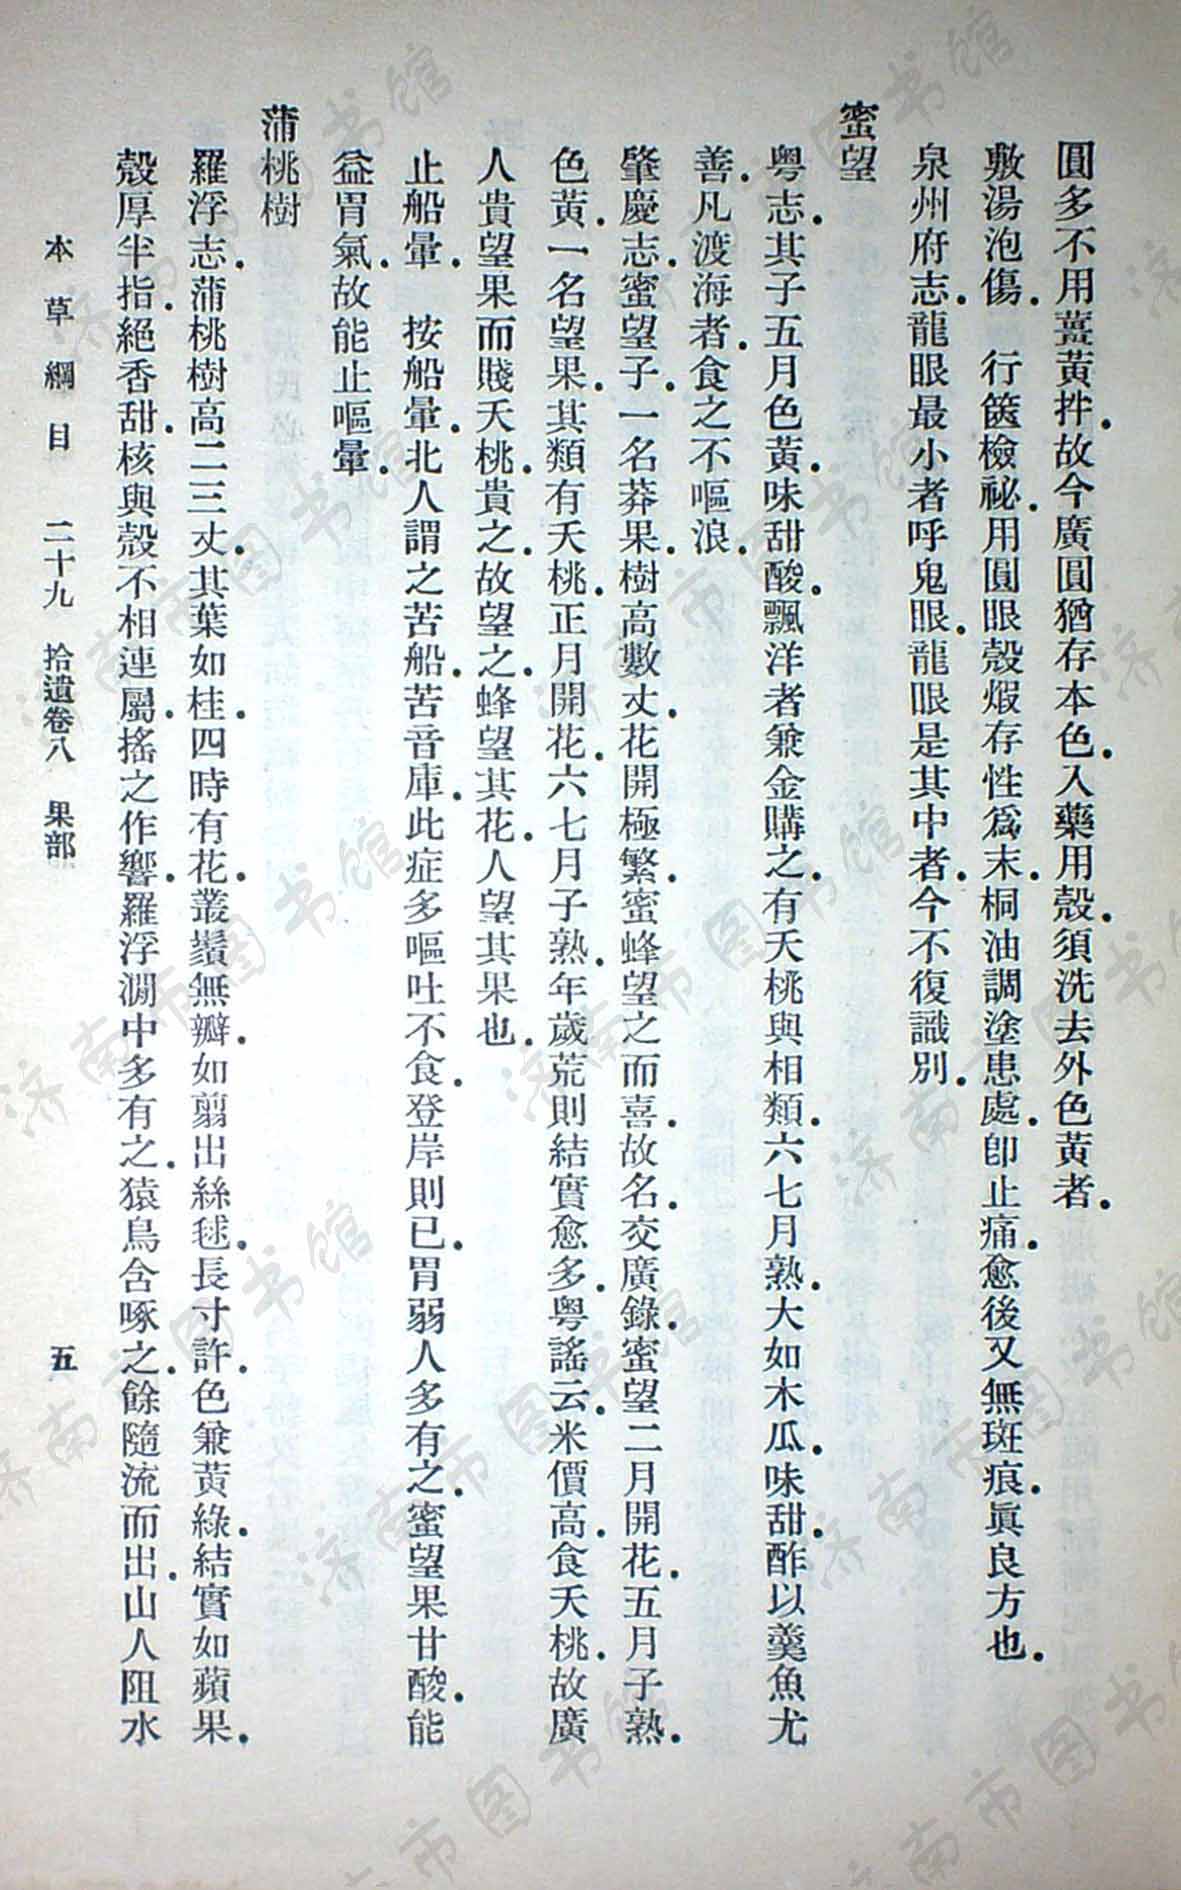 圓多不用薑黃拌．故今廣圓猶存本色．入藥用殼．須洗去外色黃者．
敷湯泡傷．　行篋檢祕．用圓眼殼煅存性爲末．桐油調塗患處．卽止痛．愈後又無斑痕．眞良方也．
泉州府志．龍眼最小者呼鬼眼．龍眼是其中者．今不復識別．
蜜望
粤志．其子五月色黃．味甜酸．飄洋者兼金購之．有天桃與相類．六七月熟．大如木瓜．味甜．酢以羹魚尤
善．凡渡海者．食之不嘔浪．
肇慶志．蜜望子．一名莽果．樹高數丈．花開極繁．蜜蜂望之而喜．故名．交廣錄．蜜望二月開花．五月子熟．
色黃．一名望果．其類有天桃．正月開花．六七月子熟．年歲荒則結實愈多．粤謠云．米價高．食天桃．故廣
人貴望果而賤天桃．貴之．故望之．蜂望其花．人望其果也．
止船暈．　按船暈．北人謂之苦船．苦音庫．此症多嘔吐不食．登岸則已．胃弱人多有之．蜜望果甘酸．能
益胃氣．故能止嘔暈．
蒲桃樹
羅浮志．蒲桃樹高二三丈．其葉如桂．四時有花．叢鬚無瓣．如翦出絲毬．長寸許．色兼黃綠．結實如蘋果．
殼厚半指．絕香甜．核與殼不相連屬．搖之作響．羅浮澗中多有之．猿鳥含啄之．餘隨流而出．山人阻水
本草綱目　二十九　拾遺卷八　果部　五
济南市图书馆